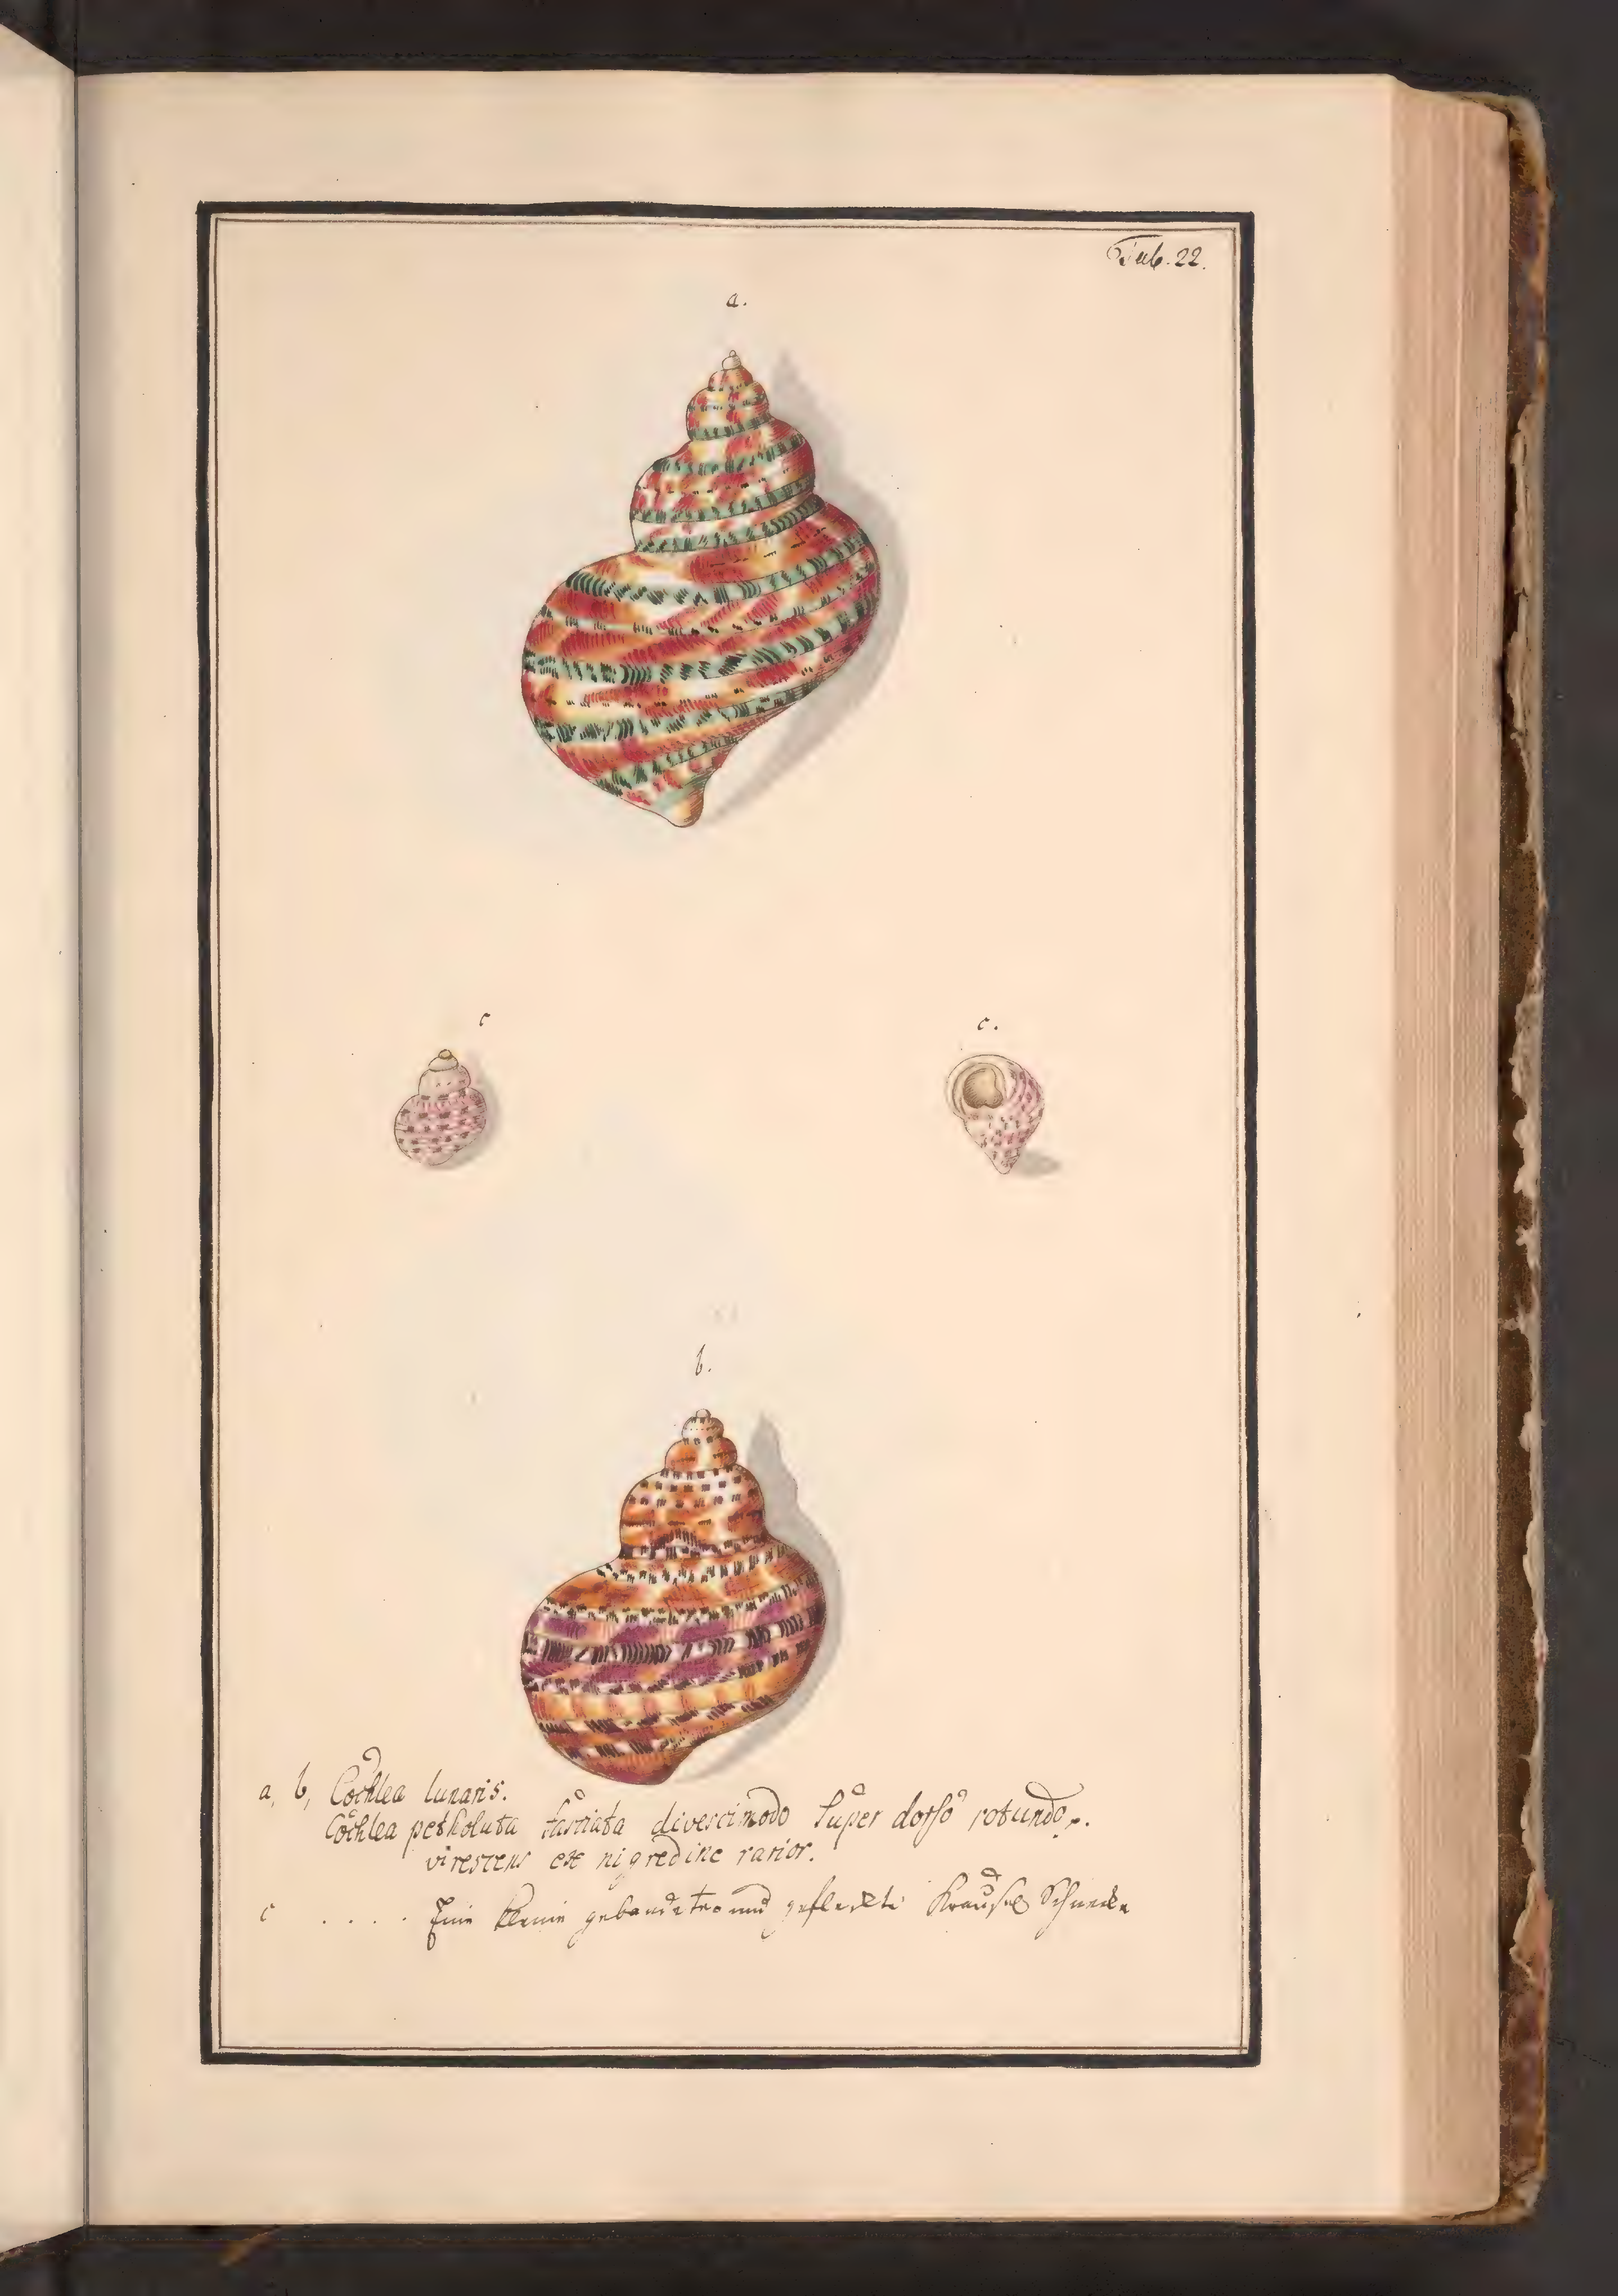 Tab. 22.
a.
c
c.
b.
a, b, Cochlea lunaris.
Cochlea petholata fasciata diversimodo super dorso rotundo,.
virescens ex nigredine rarior.
c . . . . Eine kleine gebandete und gefleckte Kräusel Schnecke